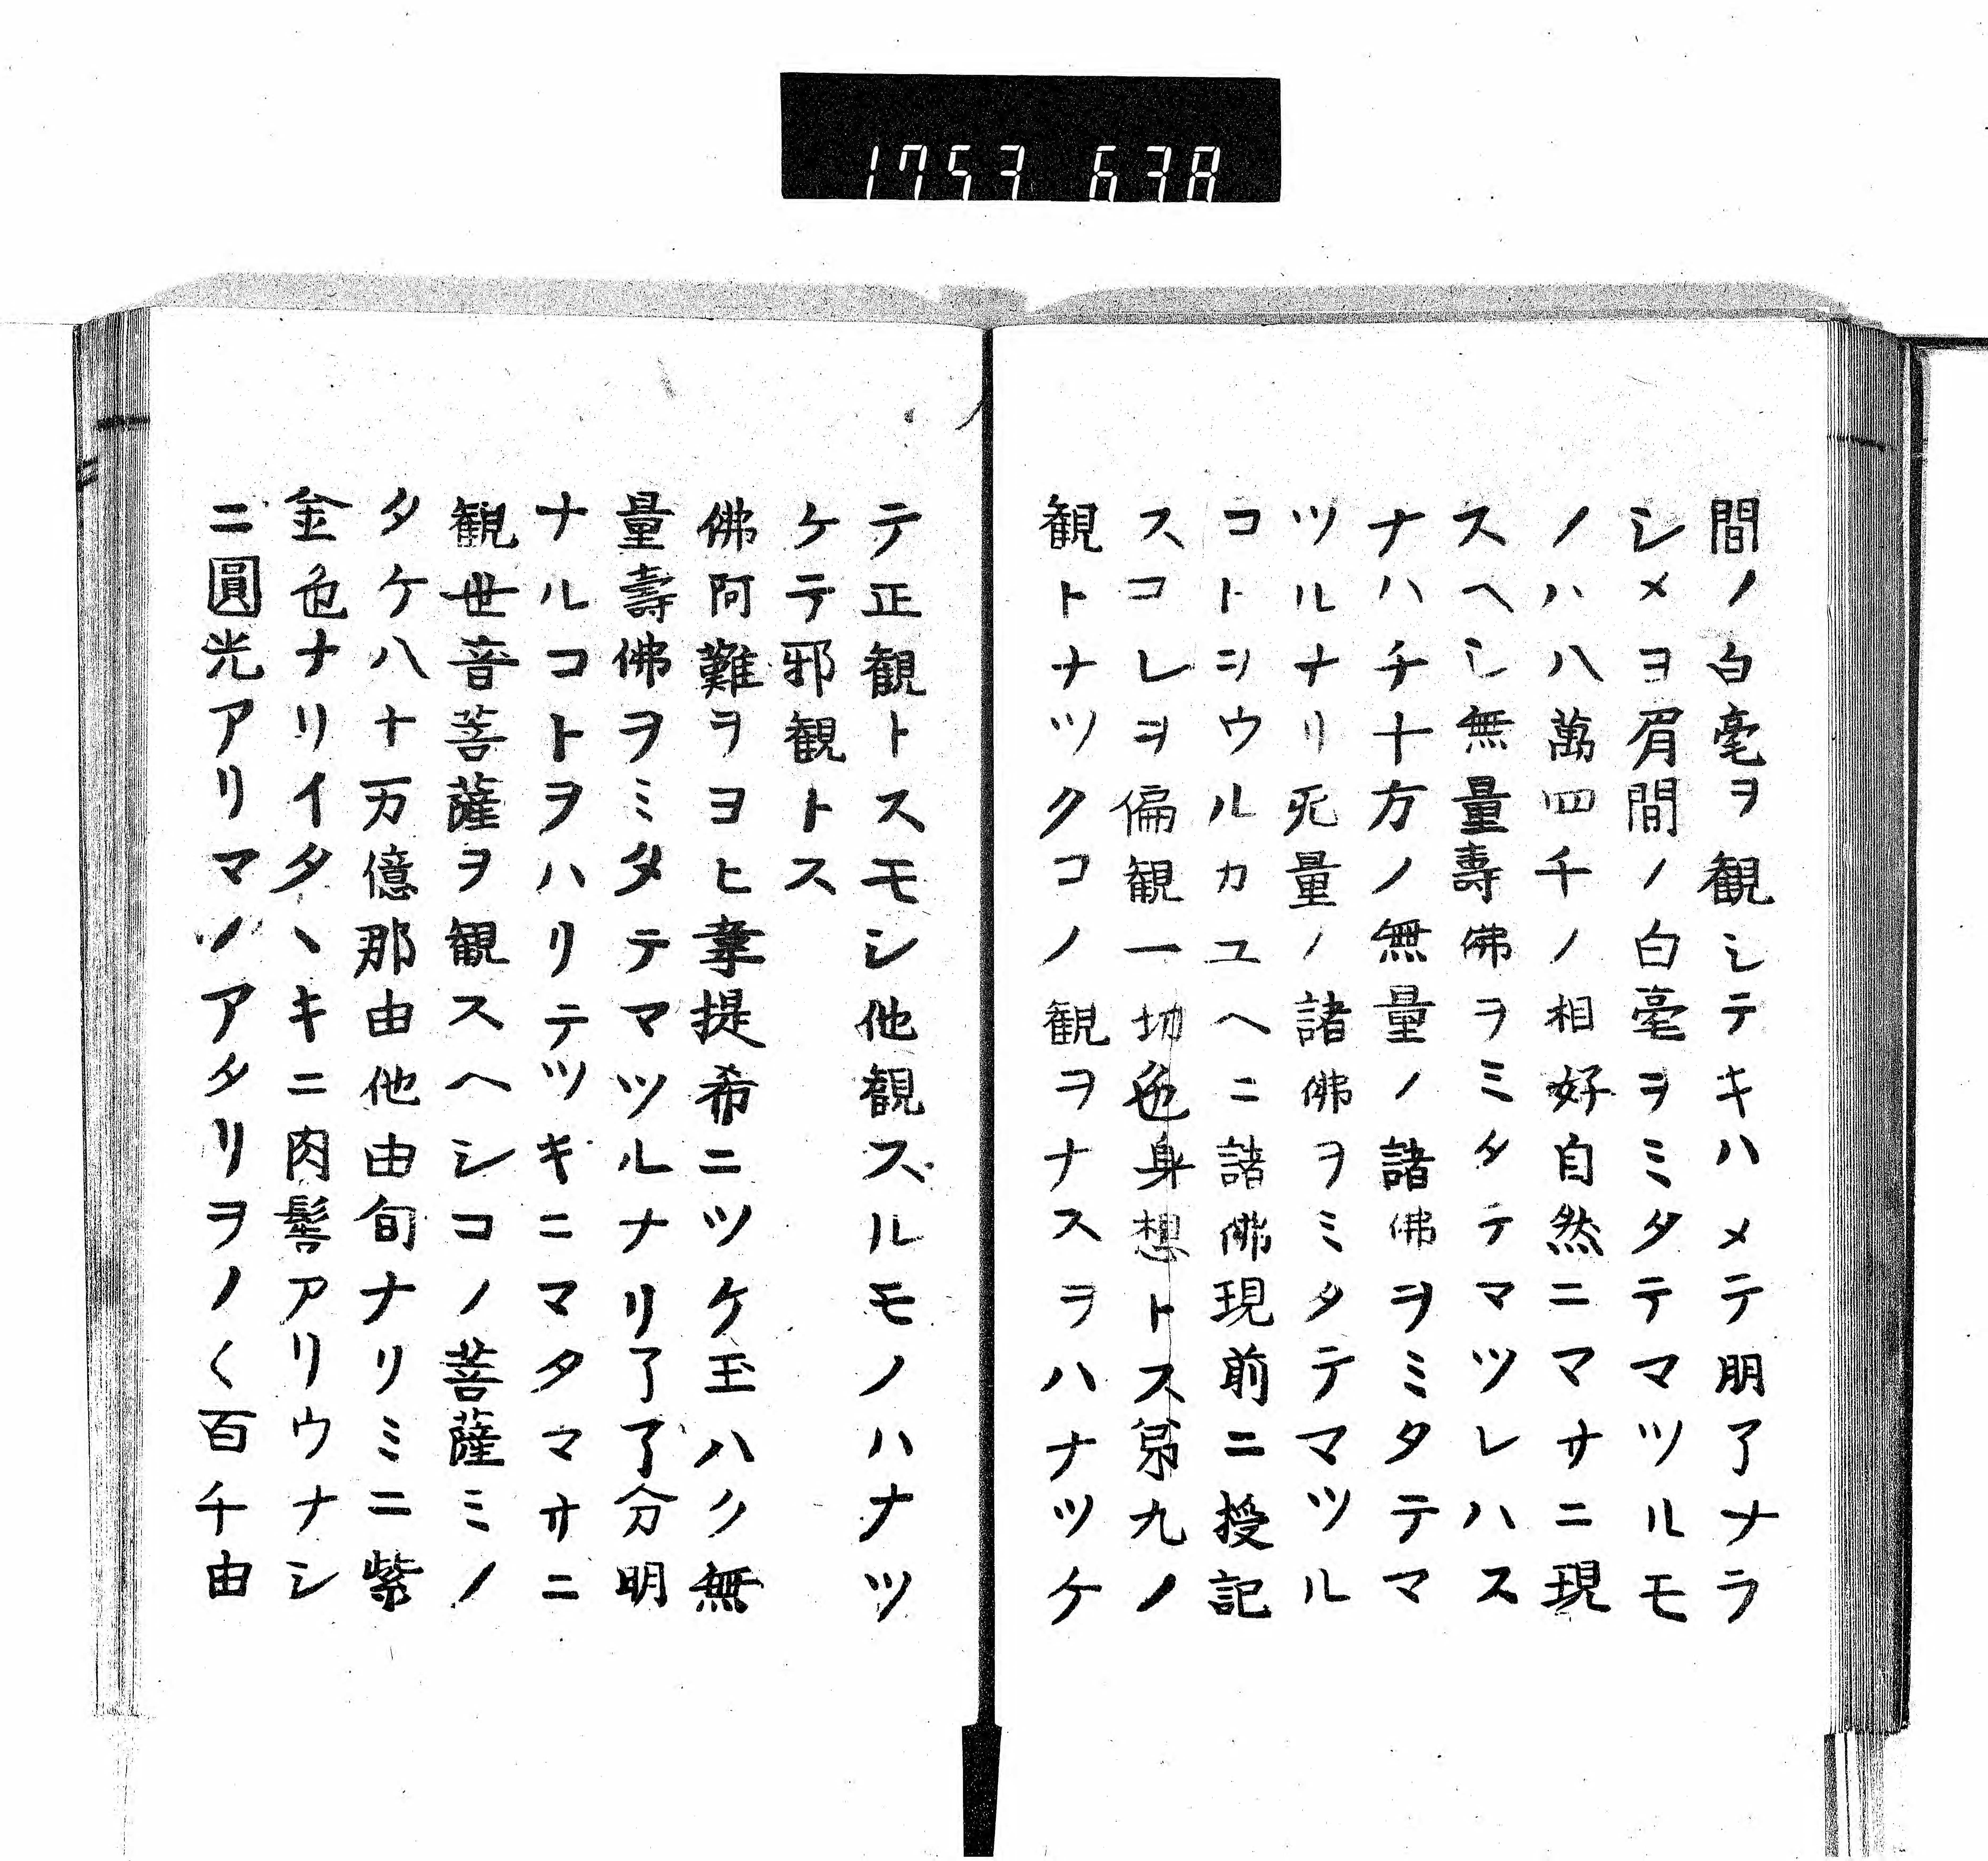 1753 638
間ノ白毫ヲ観シテキハメテ明了ナラ
シメヨ眉間ノ白毫ヲミタテマツルモ
ノハ八萬四千ノ相好自然ニマサニ現
スヘシ無量壽佛ヲミタテマツレハス
ナハチ十方ノ無量ノ諸佛ヲミタテマ
ツルナリ无量ノ諸佛ヲミタテマツル
コトヲウルカユヘニ諸佛現前ニ授記
スコレヲ偏観一切色身想トス第九ノ
観トナツクコノ観ヲナスヲハナツケ
テ正観トスモシ他観スルモノハナツ
ケテ邪観トス
佛阿難ヲヨヒ韋提希ニツケ玉ハク無
量壽佛ヲミタテマツルナリ了了分明
ナルコトヲハリテツキニマタマサニ
観世音菩薩ヲ観スヘシコノ菩薩ミノ
タケ八十万億那由他由旬ナリミニ紫
金色ナリイタヽキニ肉髻アリウナシ
ニ圓光アリマノアタリヲノ〱百千由